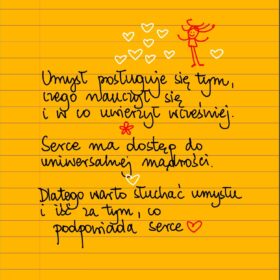 Umysł posługuje się tym,
czego nauczył się
i w co uwierzył wcześniej.
Serce ma dostęp do
uniwersalnej mądrości.
Dlatego warto słuchać umysłu
i iść za tym, co
podpowiada serce